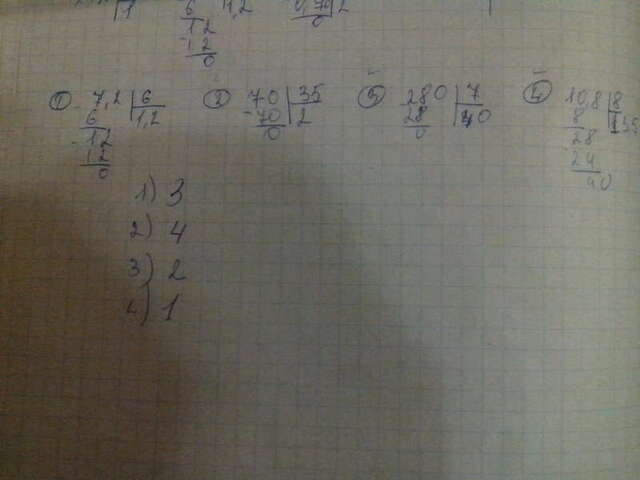 1 6 1,2 0,70 2
12 0
- 12
0
① 7,2 6 ② 70 35 ③ 280 7 ④ 10,8 8
- 6 1,2 - 70 2 28 40 8 1,35
- 12 0 0 28
12 24
0 40
1) 3
2) 4
3) 2
4) 1